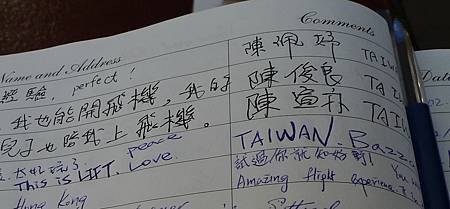 Comments
Name and Address
Date
perfect!
陳佩妤 TAIW
我也能開飛機,我的
陳俊良 TAIW
兒子也陪我上飛機。
陳宣亦 TAIW
peace
太好玩了
This is LIFT. Love.
TAIWAN. Bazz
試過你就知好嘢! You
Hong Kong
Amazing flight experience.